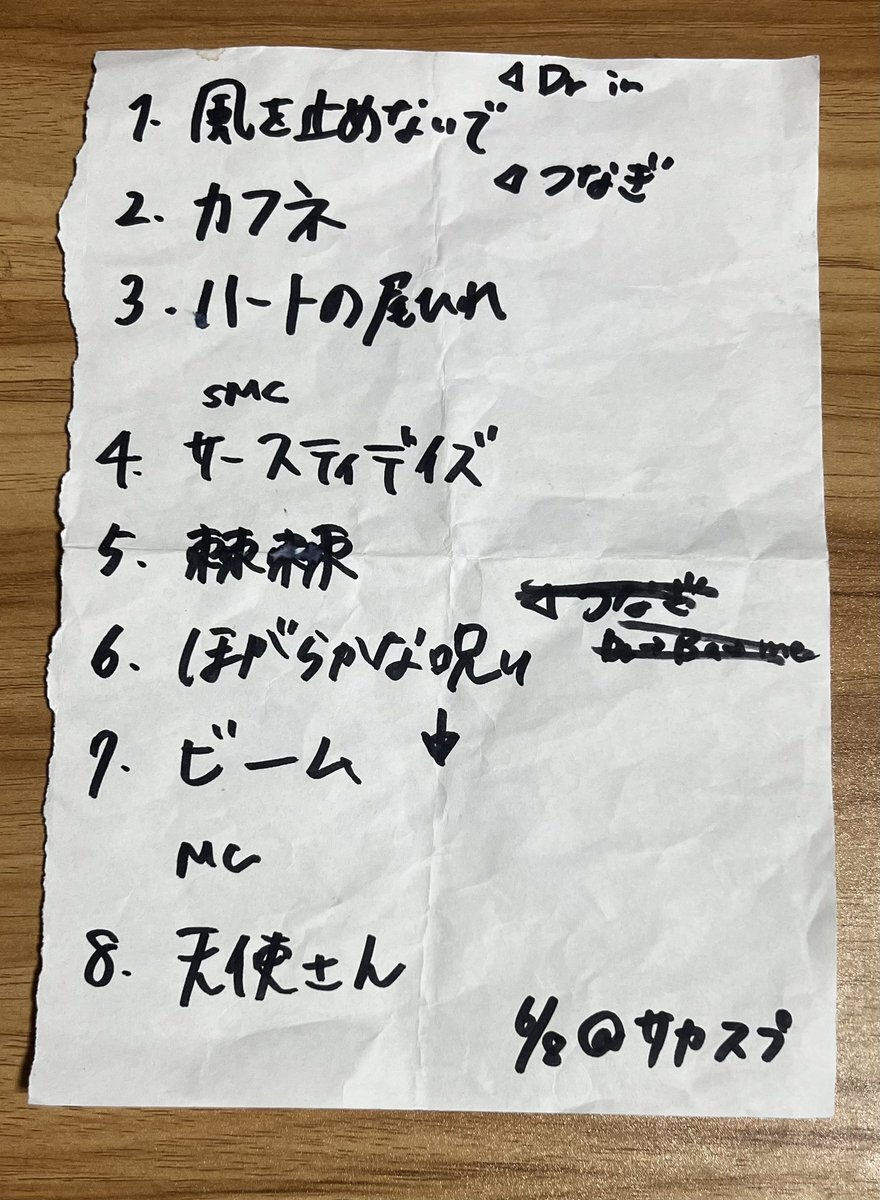 ◁ Dr in
1. 風を止めないで
◁ つなぎ
2. カフネ
3. ハートの尾ひれ
SMC
4. サースティデイズ
5. 棘棘
◁ つなぎ
6. ほがらかな呪い
↓
7. ビーム
MC
8. 天使さん
6/8@サカスプ